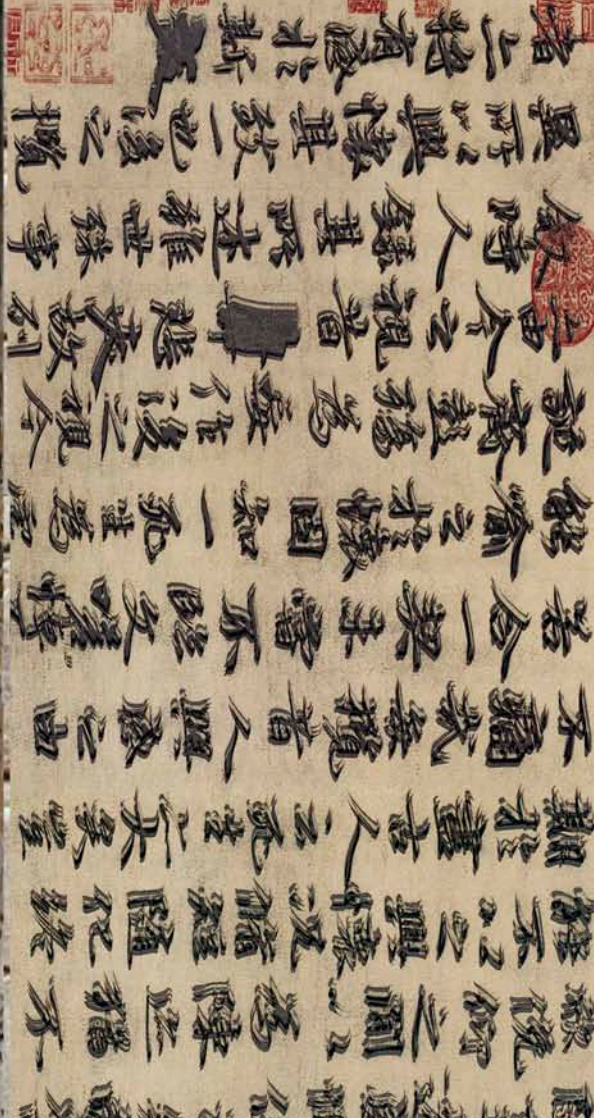 欣俛仰之間以為陳迹猶不
能不以之興懷況脩短隨化終
期於盡古人云死生亦大矣豈
不痛哉每攬昔人興感之由
若合一契未嘗不臨文嗟悼不
能喻之於懷固知一死生為虛
誕齊彭殤為妄作後之視今
亦由今之視昔悲夫故列
敘時人錄其所述雖世殊事
異所以興懷其致一也後之攬
者亦將有感於斯文